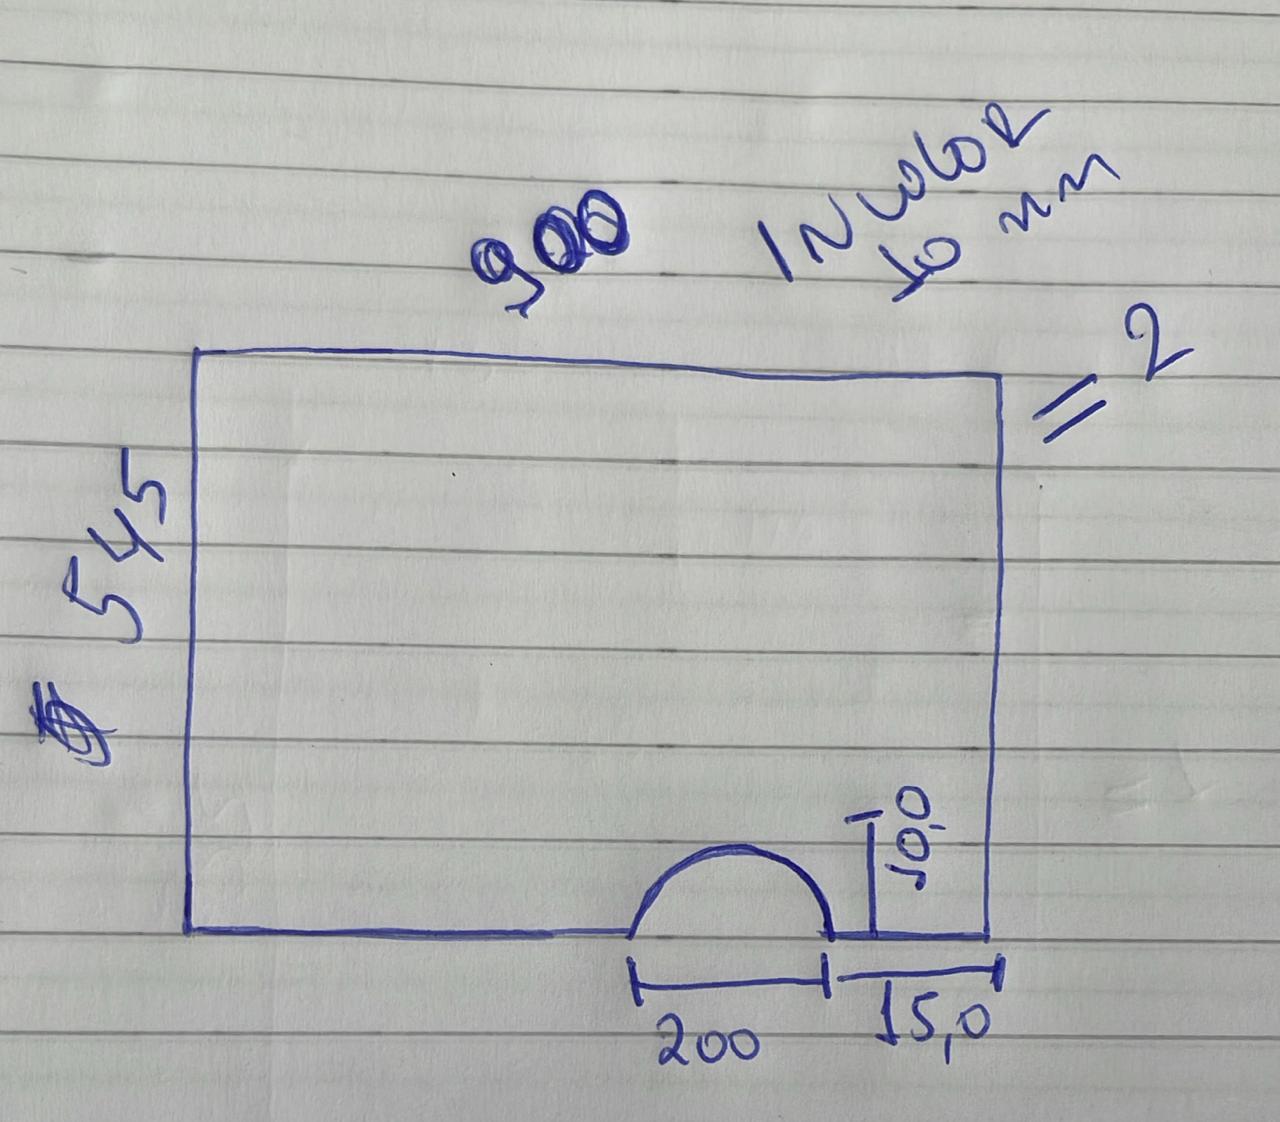 900
INCOLOR
10 mm
= 2
545
10,0
200
15,0